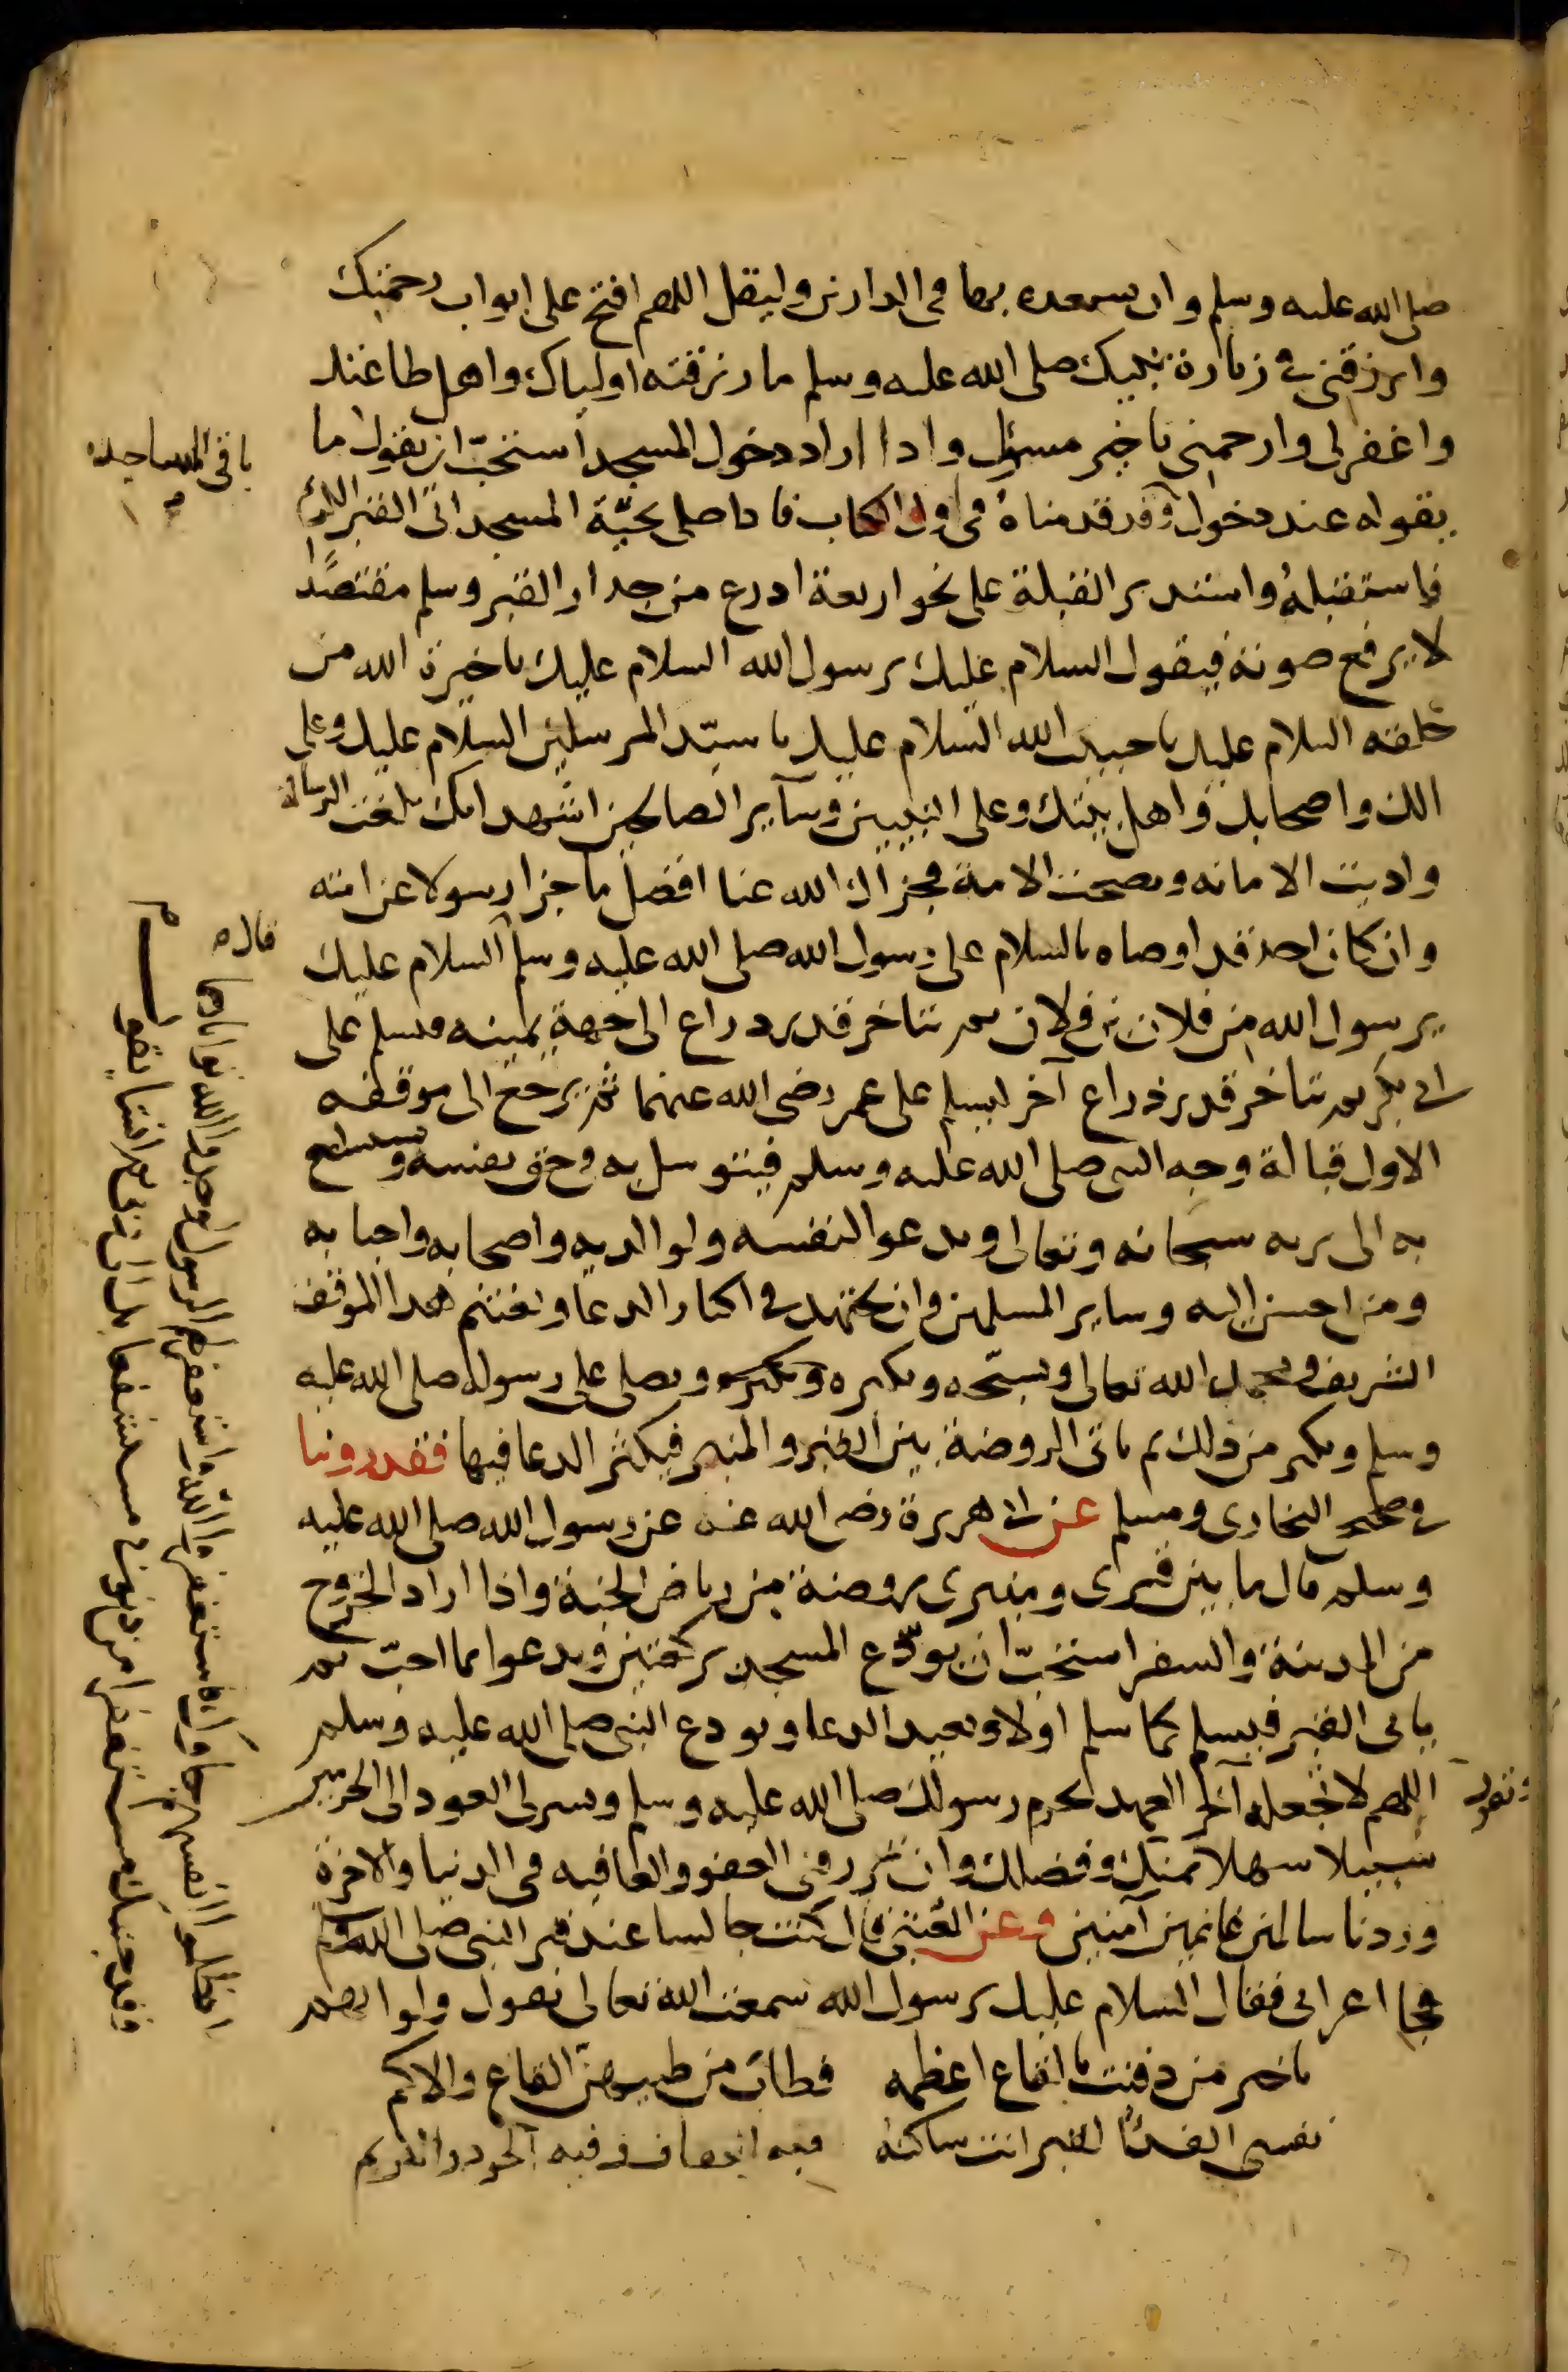 صلى الله عليه وسلم وان يسعده بها في الدارين وليقل اللهم افتح على ابواب رحمتك
وارزقني في زيارة نبيك صلى الله عليه وسلم ما رزقته اولياك واهل طاعتك
واغفر لى وارحمني يا خير مسؤل واذا اراد دخول المسجد استحبّ ان يقول ما
يقوله عند دخول وقد قدمناه في اول الكتاب فاذا صلى تحيّة المسجد اتى القبر الكريم
باقى المساجد
فاستقبله واستدبر القبلة على نحو اربعة اذرع من جدار القبر وسلم مقتصدًا
لا يرفع صوته فيقول السلام عليك يرسول الله السلام عليك يا خيرة الله من
خلقه السلام عليك يا حبيب الله السلام عليك يا سيّد المرسلين السلام عليك وعلى
الك واصحابك واهل بيتك وعلى النبيين وسآير الصالحين اشهد انك بلغت الرسالة
واديت الامانه ونصحت الامة فجزاك الله عنا افضل ما جزا رسولا عن امته
وان كان احد قد اوصاه بالسلام على رسول الله صلى الله عليه وسلم السلام عليك
قال
يرسول الله من فلان بن فلان ثم يتاخر قدر ذراع الى جهة يمينه فيسلم على
ابى بكر ثم يتاخر قدر ذراع آخر ليسلم على عمر رضى الله عنهما ثم يرجع الى موقفه
الاول قبالة وجه النبي صلى الله عليه وسلم فيتوسل به في حق نفسه ويتشفع
به الى ربه سبحانه وتعالى ويدعو لنفسه ولوالديه واصحابه واحبابه
ومن احسن اليه وساير المسلمين وان يجتهد في اكثار الدعا ويغتنم هذا الموقف
الشريف ويحمد الله تعالى ويسبّحه ويكبره ويصلى على رسوله صلى الله عليه
وسلم ويكثر من ذلك ثم ياتى الروضة بين القبر والمنبر فيكثر الدعا فيها فقد روينا
في صحيح البخارى ومسلم عن ابى هريرة رضى الله عنه عن رسول الله صلى الله عليه
وسلم قال ما بين قبرى ومنبرى روضة من رياض الجنة واذا اراد الخروج
من المدينة والسفر استحبّ ان يودّع المسجد بركعتين ويدعوا بما احبّ ثم
ياتى القبر فيسلم كما سلم اولا ويعيد الدعا ويودع النبى صلى الله عليه وسلم
ويقول اللهم لا تجعله آخر العهد بحرم رسولك صلى الله عليه وسلم ويسر لى العود الى الحرمين
سبيلا سهلا بمنك وفضلك وان ترزقنى العفو والعافيه في الدنيا والاخرة
وردنا سالمين غانمين آمنين وعن العتبى قال كنت جالسا عند قبر النبى صلى الله وسلم
فجا اعرابى فقال السلام عليك يرسول الله سمعت الله تعالى يقول ولو انهم
اذ ظلموا انفسهم جاوك فاستغفروا الله واستغفر لهم الرسول لوجدوا الله توابا رحيما
وقد جيتك مستغفرا من ذنوبى مستشفعا بك الى ربى ثم انشا يقول
يا خير من دفنت بالقاع اعظمه فطاب من طيبهنّ القاع والاكم
نفسى الفدآ لقبر انت ساكنه فيه العفاف وفيه الجود والكرم